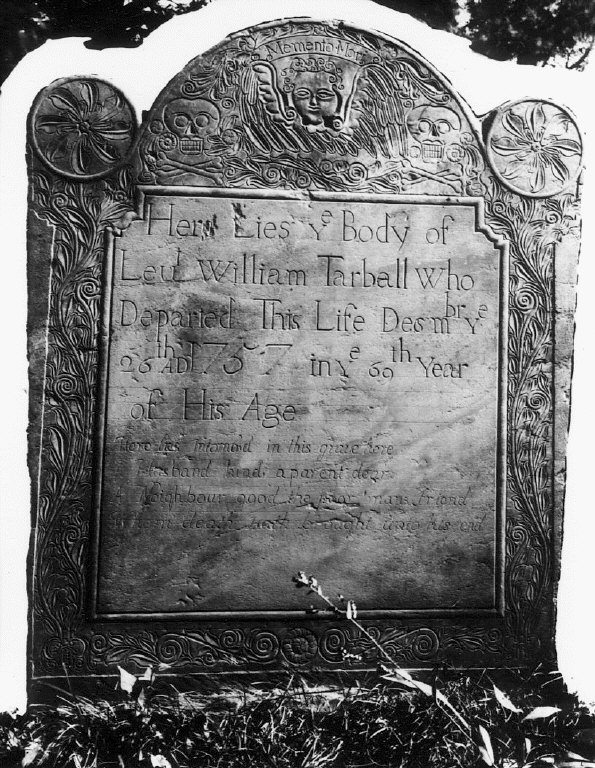 Memento Mori
Here Lies yᵉ Body of
Leuᵗ William Tarball Who
Departed This Life Desmᵇʳ yᵉ
26ᵗʰ AD 1757 in yᵉ 69ᵗʰ Year
of His Age
Here lies Interned in this grave here
Husband kind a parent dear
A Neighbour good the poor mans friend
Whom death hath brought unto his end